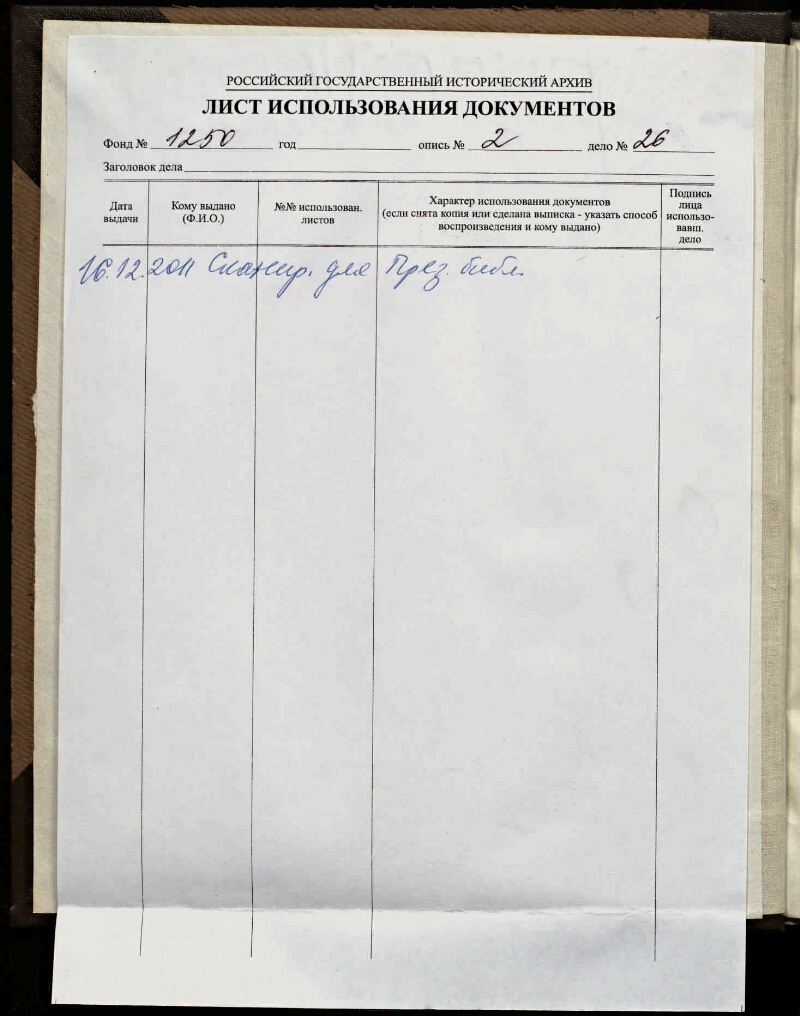 РОССИЙСКИЙ ГОСУДАРСТВЕННЫЙ ИСТОРИЧЕСКИЙ АРХИВ
ЛИСТ ИСПОЛЬЗОВАНИЯ ДОКУМЕНТОВ
Фонд № 1250 год опись № 2 дело № 26
Заголовок дела
Дата
выдачи
Кому выдано
(Ф.И.О.)
№№ использован.
листов
Характер использования документов
(если снята копия или сделана выписка - указать способ
воспроизведения и кому выдано)
Подпись
лица
использо-
вавш.
дело
16.12.2011 Сканир. для През. библ.